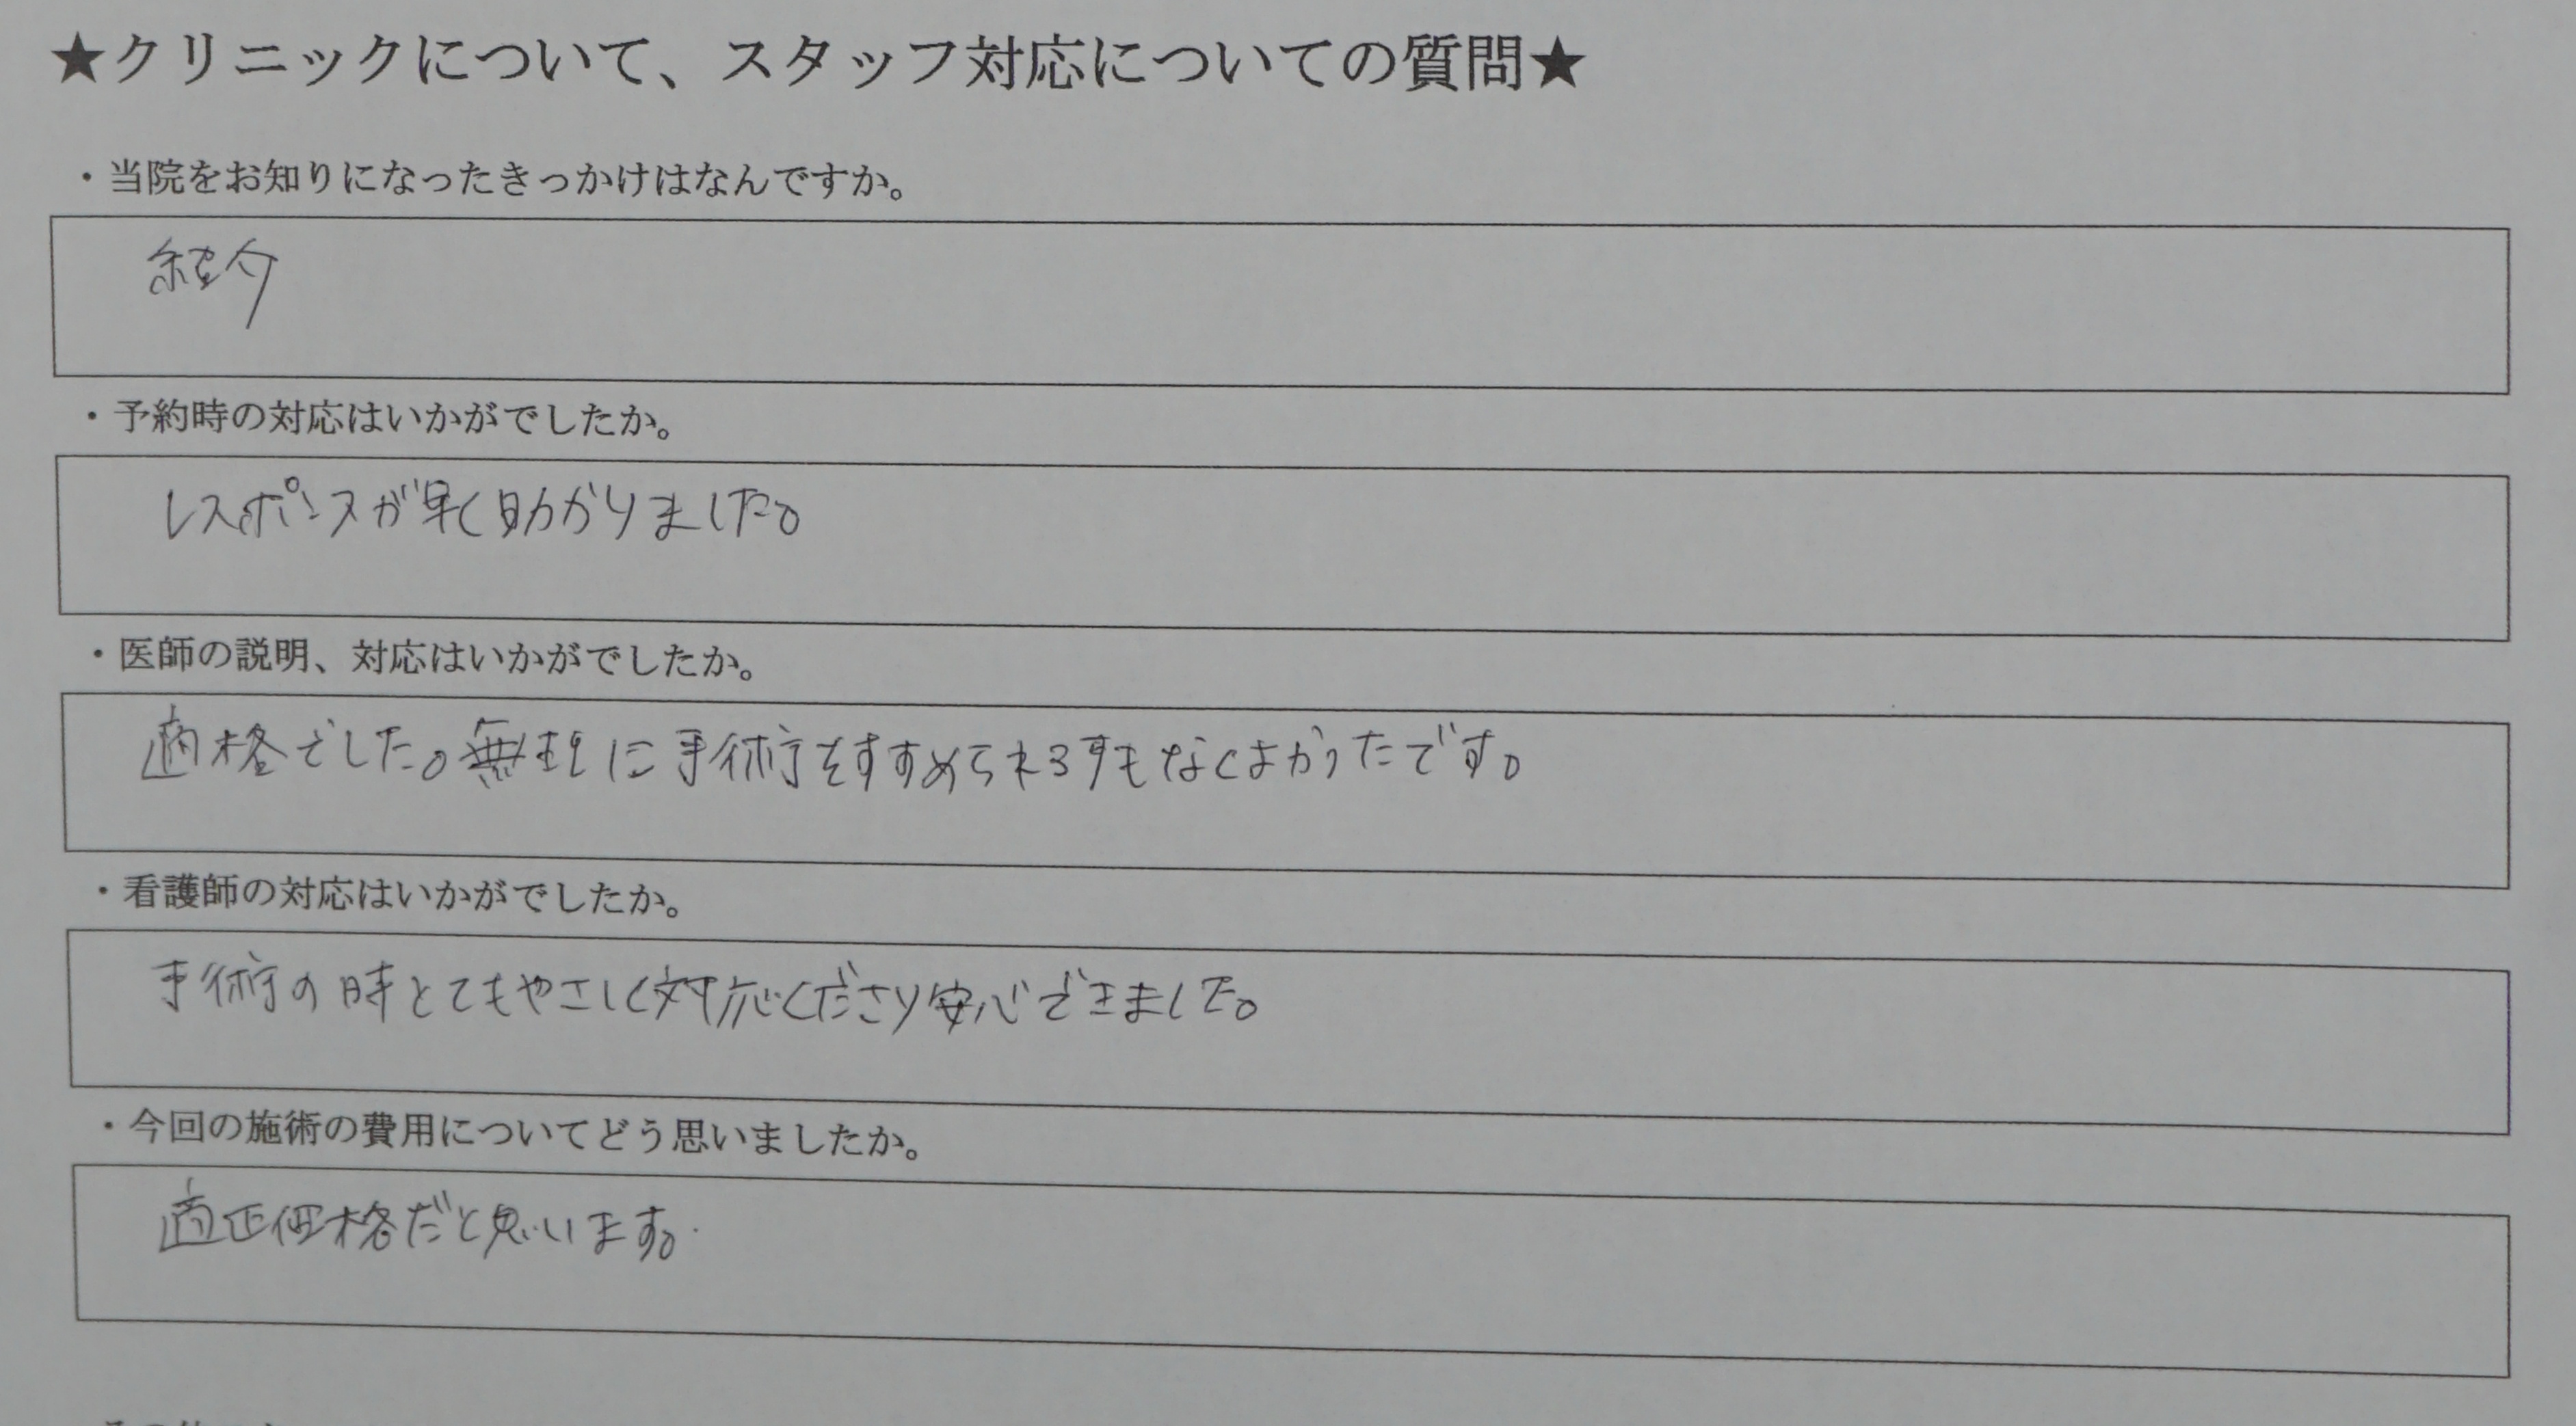 ★クリニックについて、スタッフ対応についての質問★
・当院をお知りになったきっかけはなんですか。
紹介
・予約時の対応はいかがでしたか。
レスポンスが早く助かりました。
・医師の説明、対応はいかがでしたか。
適格でした。無理に手術をすすめられる事もなくよかったです。
・看護師の対応はいかがでしたか。
手術の時とてもやさしく対応くださり安心できました。
・今回の施術の費用についてどう思いましたか。
適正価格だと思います。